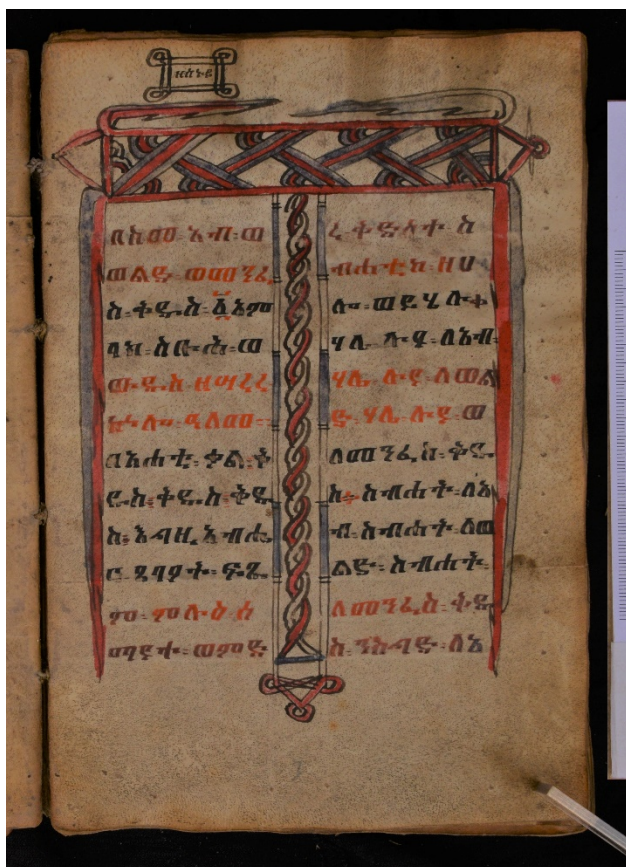 ዘሰኑይ
በስመ፡አብ፡ወ
ወልድ፡ወመንፈ
ስ፡ቅዱስ፡፩አም
ላክ፡ስቡሕ፡ወ
ውዱስ ዘሣረረ
ኵሎ፡ዓለመ፡
በአሐቲ፡ቃል፡ቅ
ዱስ፡ቅዱስ፡ቅዱ
ስ፡እግዚአብሔ
ር፡ጸባዖት፡ፍጹ
ም፡ምሉዕ ሰ
ማያተ፡ወምድ
ረ ቅድሳተ ስ
ብሐቲከ ዘሀ
ሎ፡ወይሄሉ፡
ሃሌ ሉያ፡ለአብ፡
ሃሌ ሉያ ለወል
ድ፡ሃሌ ሉያ ወ
ለመንፈስ፡ቅዱ
ስ፡ስብሐት፡ለአ
ብ፡ስብሐት፡ለወ
ልድ፡ስብሐት፡
ለመንፈስ፡ቅዱ
ስ፡ንስግድ፡ለአ